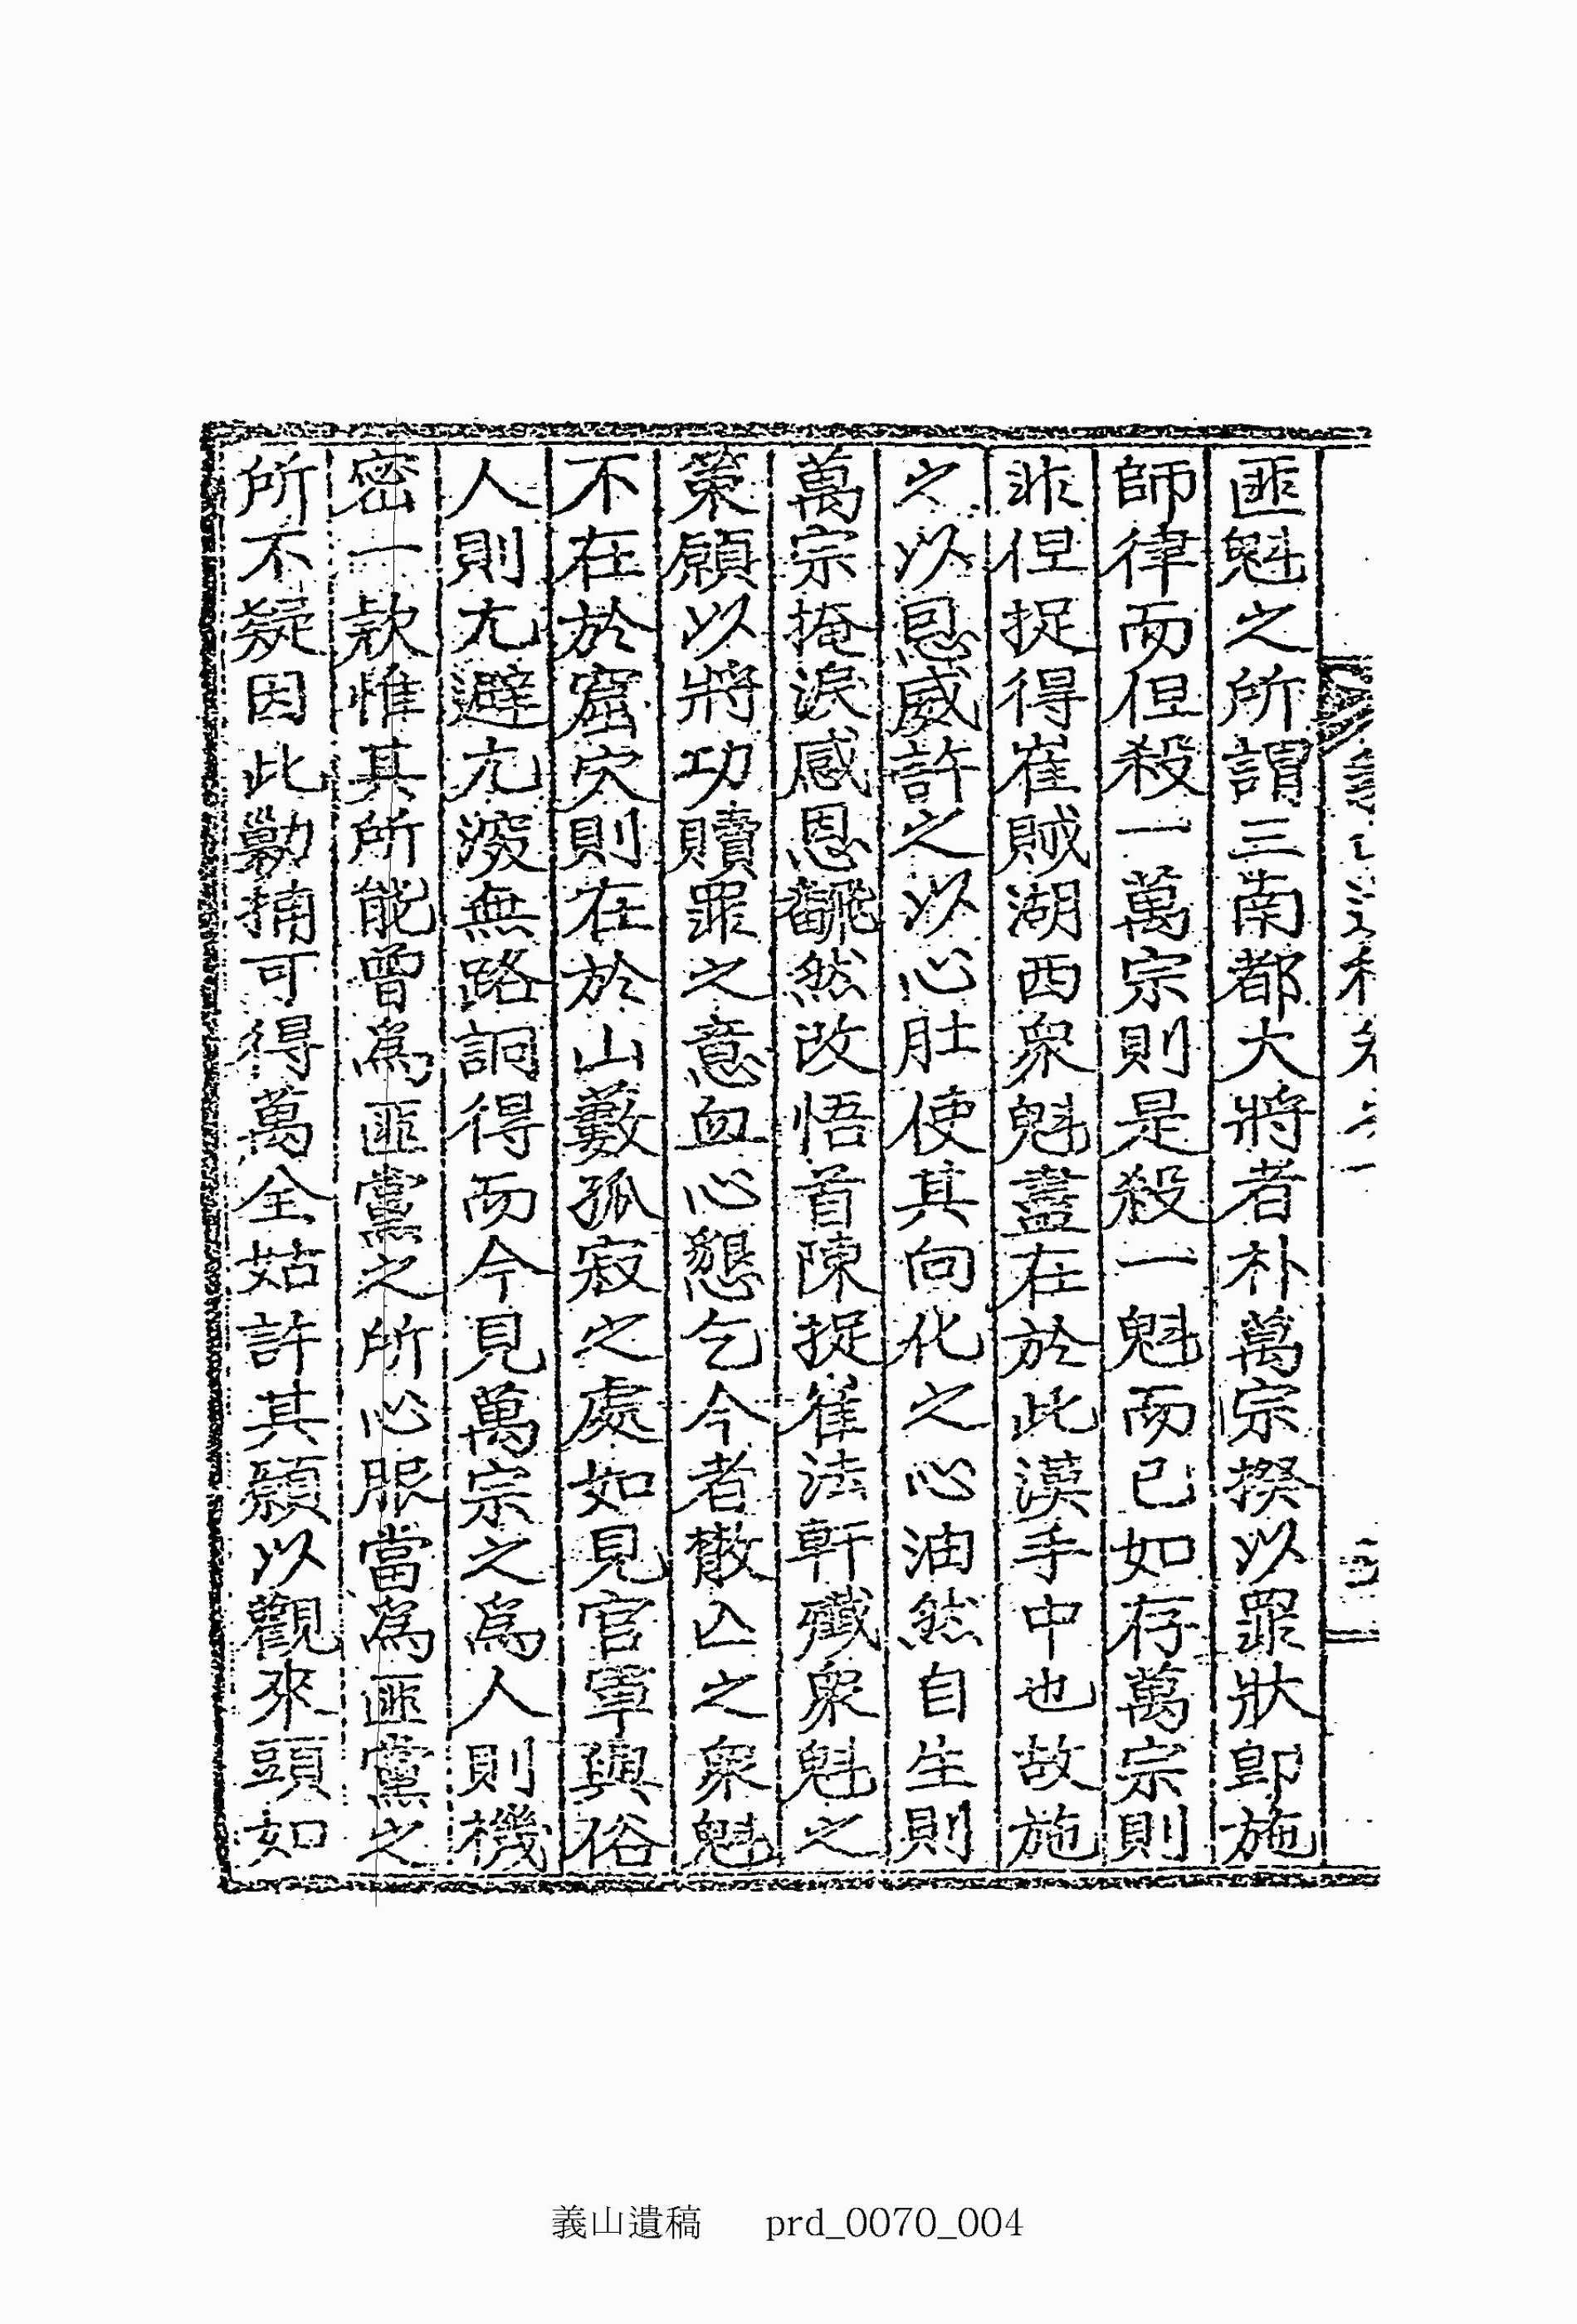 匪魁之所謂三南都大將者朴萬宗揆以罪狀卽施
師律而但殺一萬宗則是殺一魁而已如存萬宗則
非但捉得崔賊湖西衆魁盡在於此漢手中也故施
之以恩威許之以心肚使其向化之心油然自生則
萬宗掩淚感恩飜然改悟首陳捉崔法軒殲衆魁之
策願以將功贖罪之意血心懇乞今者散亡之衆魁
不在於窟穴則在於山藪孤寂之處如見官軍與俗
人則尤避尤深無路詗得而今見萬宗之爲人則機
密一款惟其所能曾爲匪黨之所心服當爲匪黨之
所不疑因此勦捕可得萬全姑許其願以觀來頭如
義山遺稿 prd_0070_004